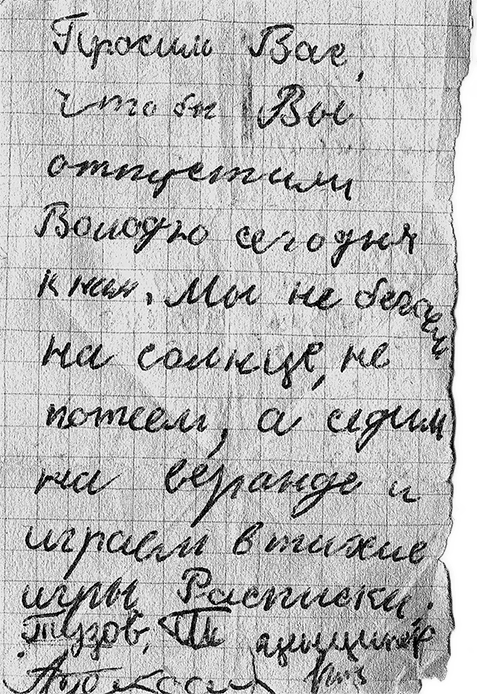 Просим Вас,
чтобы Вы
отпустили
Володю сегодня
к нам. Мы не бегаем
на солнце, не
потеем, а сидим
на веранде и
играем в тихие
игры. Расписки:
Тузов,